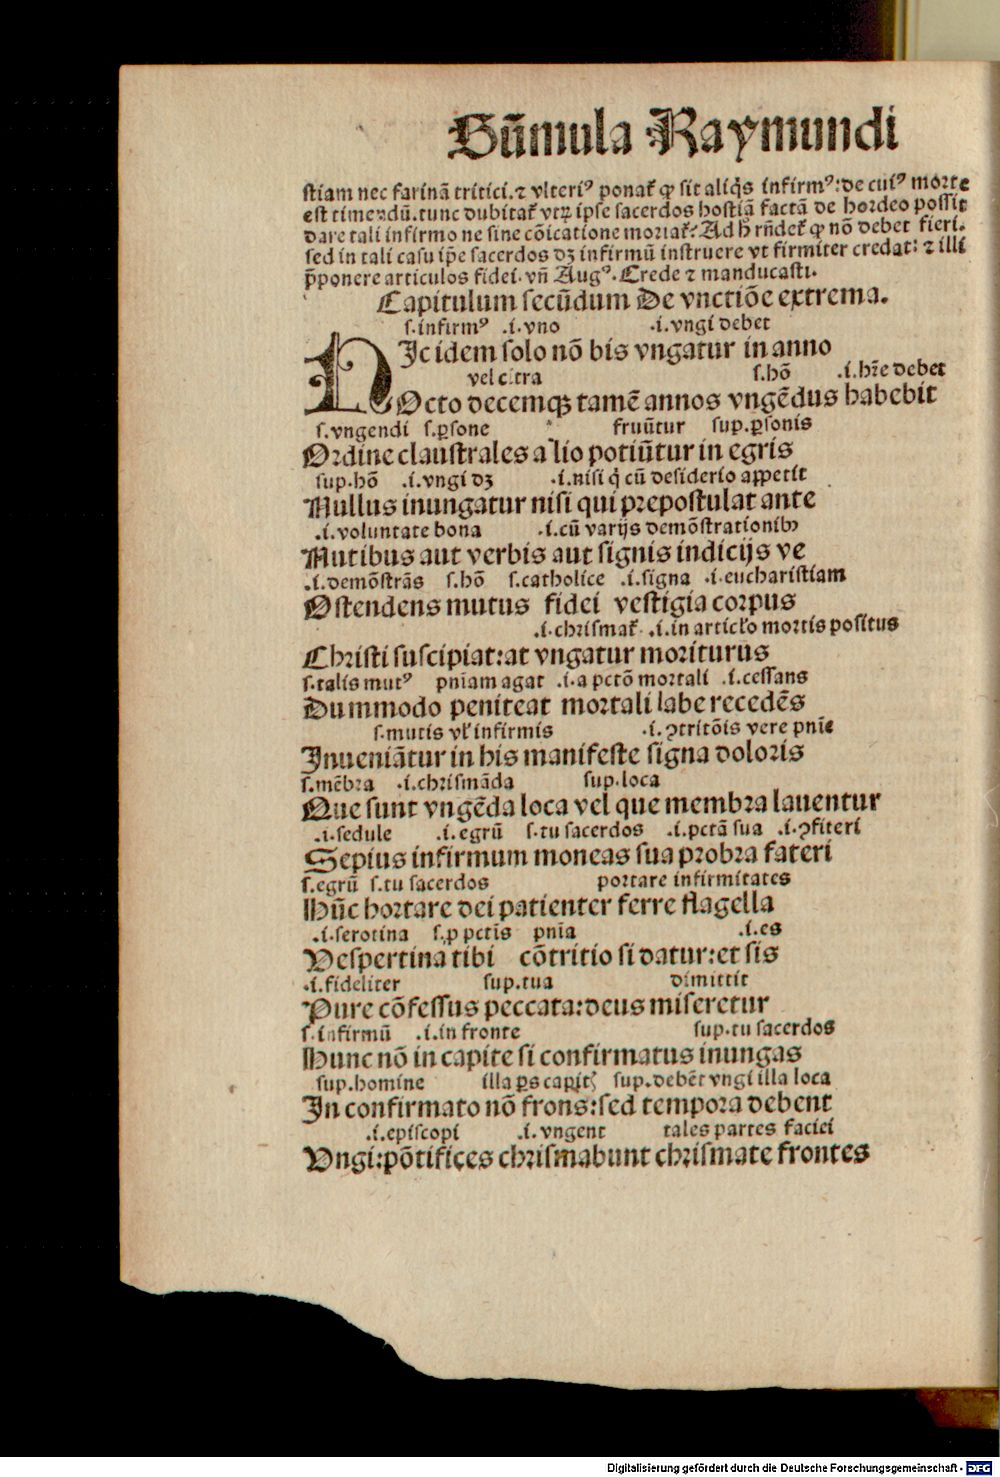 Sūmula Raymundi
stiam nec farinā tritici. ⁊ vlteriꝰ ponať ꝙ sit aliq̇s infirmꝰ: de cuiꝰ morte
est timendū. tunc dubitať vtꝝ ipse sacerdos hostiā factā de hordeo possit
dare tali infirmo ne sine cōicatione moriať: Ad h̄ rn̄deť ꝙ nō debet fieri.
sed in tali casu ip̄e sacerdos dꝫ infirmū instruere vt firmiter credat: ⁊ illi
p̄ponere articulos fidei. vn̄ Augꝰ. Crede ⁊ manducasti.
Capitulum secūdum De vnctiōe extrema.
s.infirmꝰ .i.vno .i.vngi debet
HIc idem solo nō bis vngatur in anno
vel citra s.hō .i.hr̄e debet
Octo decemqꝫ tamē annos vngēdus habebit
s.vngendi s.ꝑsone fruūtur sup.ꝑsonis
Ordine claustrales alio potiūtur in egris
sup.hō .i.vngi dꝫ .i.nisi q̇ cū desiderio appetit
Nullus inungatur nisi qui prepostulat ante
.i.voluntate bona .i.cū varijs demōstrationibꝰ
Nutibus aut verbis aut signis indicijs ve
.i.demōstrās s.hō s.catholice .i.signa .i.eucharistiam
Ostendens mutus fidei vestigia corpus
.i.chrismať .i.in articƚo mortis positus
Christi suscipiat: at vngatur moriturus
s.talis mutꝰ pn̄iam agat .i.a pctō mortali .i.cessans
Dummodo peniteat mortali labe recedēs
s.mutis vƚ infirmis .i.ꝯtritōis vere pn̄ie
Inueniātur in his manifeste signa doloris
s.mēbra .i.chrismāda sup.loca
Que sunt vngēda loca vel que membra lauentur
.i.sedule .i.egrū s.tu sacerdos .i.pctā sua .i.ꝯfiteri
Sepius infirmum moneas sua probra fateri
s.egrū s.tu sacerdos portare infirmitates
Hūc hortare dei patienter ferre flagella
.i.serotina s.ꝓ pctīs pn̄ia .i.es
Vespertina tibi cōtritio si datur: et sis
.i.fideliter sup.tua dimittit
Pure cōfessus peccata: deus miseretur
s.infirmū .i.in fronte sup.tu sacerdos
Hunc nō in capite si confirmatus inungas
sup.homine illa ꝑs capitꝭ sup.debēt vngi illa loca
In confirmato nō frons: sed tempora debent
.i.episcopi .i.vngent tales partes faciei
Vngi: pōtifices chrismabunt chrismate frontes
Digitalisierung gefördert durch die Deutsche Forschungsgemeinschaft - DFG